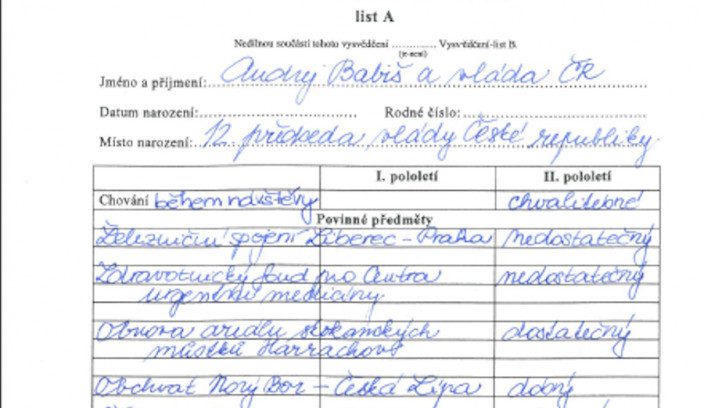 list A
Nedílnou součástí tohoto vysvědčení ............ Vysvědčení-list B.
(je-není)
Jméno a příjmení: Andrej Babiš a vláda ČR
Datum narození: Rodné číslo:
Místo narození: 12. předseda vlády České republiky
I. pololetí II. pololetí
Chování během návštěvy chvalitebné
Povinné předměty
Železniční spojení Liberec – Praha nedostatečný
Zdravotnický fond pro Centra nedostatečný
urgentní medicíny
Obnova areálu skokanských dostatečný
můstků Harrachov
Obchvat Nový Bor – Česká Lípa dobrý